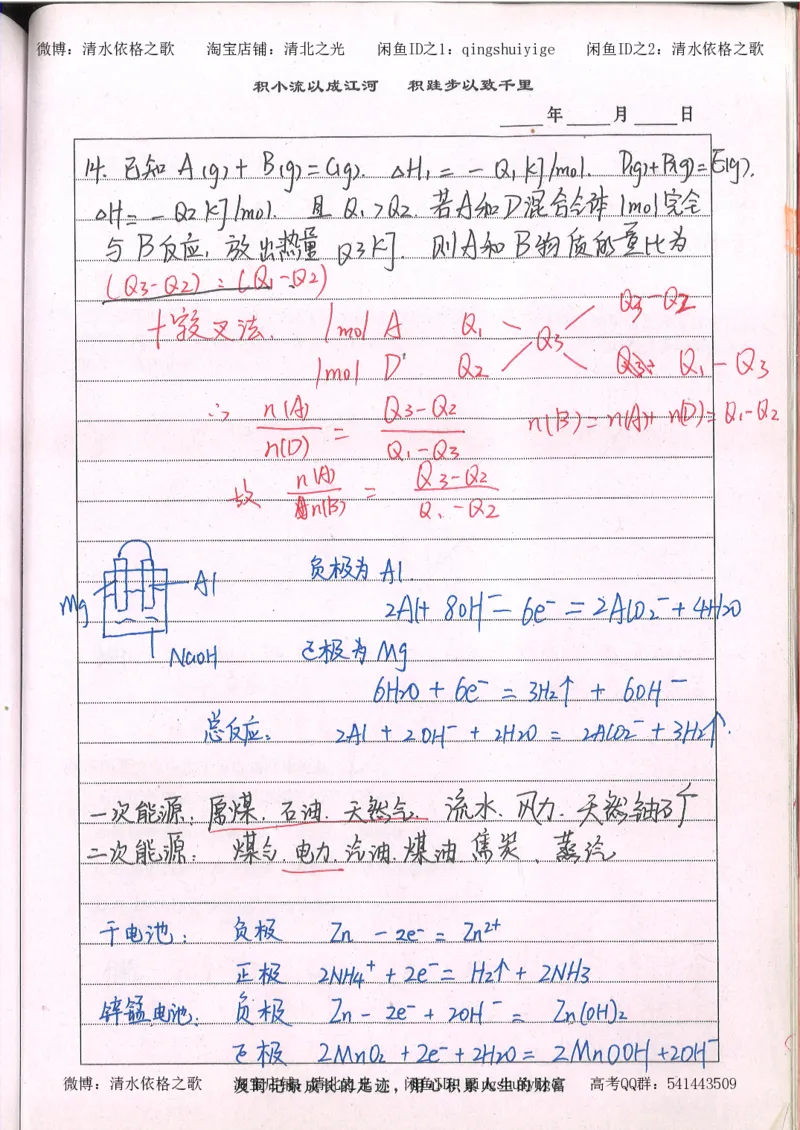 微博：清水依格之歌 淘宝店铺：清北之光 闲鱼ID之1：qingshuiyige 闲鱼ID之2：清水依格之歌
积小流以成江河 积跬步以致千里
年 月 日
14. 已知 A(g) + B(g) = C(g). △H₁ = - Q₁ kJ/mol. D(g)+B(g)=E(g).
△H = - Q2 kJ/mol. 且 Q₁>Q2. 若A和D混合气体 1mol完全
与 B反应, 放出热量 Q3 kJ. 则A和B物质的量比为
(Q3-Q2) : (Q₁-Q2)
十字交叉法. 1mol A Q₁ Q3 Q3-Q2
1mol D Q2 Q₁ - Q3
∴ n(A)/n(D) = (Q3-Q2)/(Q₁-Q3) n(B) = n(A)+ n(D) = Q₁-Q2
故 n(A)/n(B) = (Q3-Q2)/(Q₁-Q2)
Mg Al NaOH
负极为 Al.
2Al + 8OH⁻ - 6e⁻ = 2AlO2⁻ + 4H2O
正极为 Mg
6H2O + 6e⁻ = 3H2↑ + 6OH⁻
总反应: 2Al + 2OH⁻ + 2H2O = 2AlO2⁻ + 3H2↑.
一次能源: 原煤. 石油. 天然气. 流水. 风力. 天然铀矿
二次能源: 煤气. 电力. 汽油. 煤油 焦炭 、蒸汽
干电池: 负极 Zn - 2e⁻ = Zn²⁺
正极 2NH4⁺ + 2e⁻ = H2↑ + 2NH3
锌锰电池: 负极 Zn - 2e⁻ + 2OH⁻ = Zn(OH)2
正极 2MnO2 + 2e⁻ + 2H2O = 2MnOOH + 2OH⁻
微博：清水依格之歌 淘宝店铺：清北之光 闲鱼ID：qingshuiyige 高考QQ群：541443509
及时记录成长的足迹，用心积累人生的财富